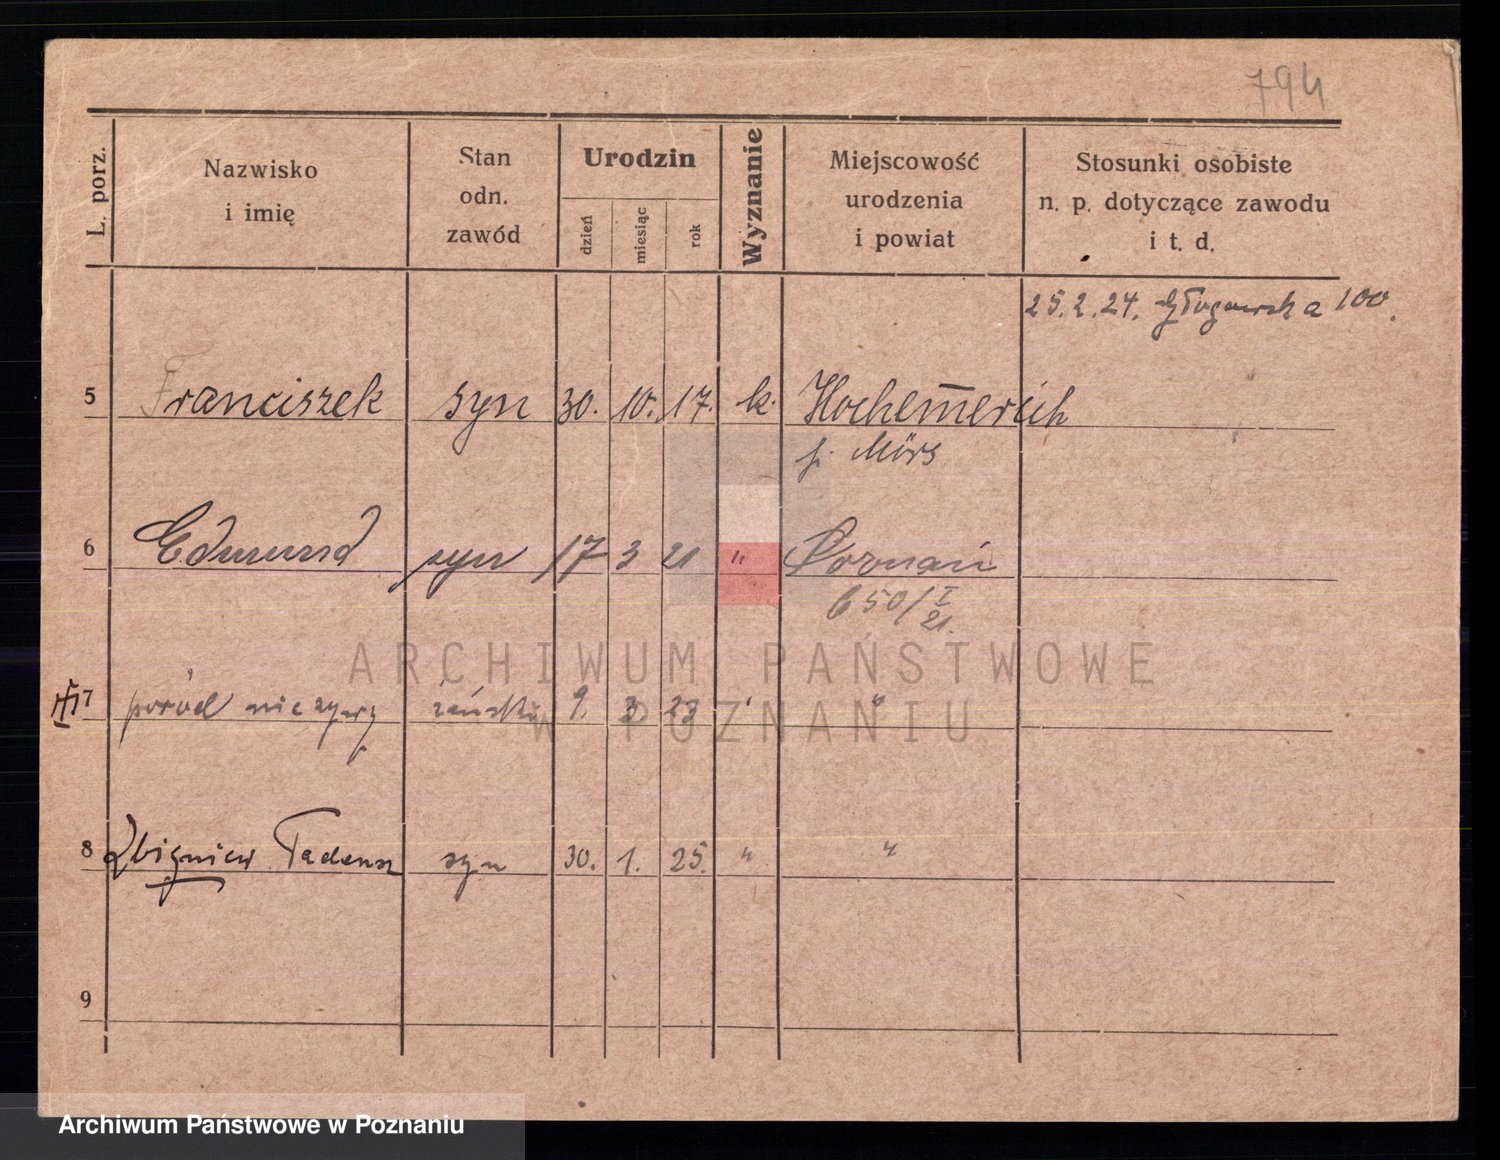 794
L. porz.
Nazwisko
i imię
Stan
odn.
zawód
Urodzin
dzień
miesiąc
rok
Wyznanie
Miejscowość
urodzenia
i powiat
Stosunki osobiste
n. p. dotyczące zawodu
i t. d.
25.2.24. Głogowska 100.
5 Franciszek syn 30. 10. 17. k. Hochem̅erich
p. Mörs
6 Edmund syn 17 3 21 " Poznań
650/I
21.
7 poród nieżywy żeński 9. 3. 23 " "
8 Zbigniew Tadeusz syn 30. 1. 25. " "
9
ARCHIWUM PAŃSTWOWE
W POZNANIU
Archiwum Państwowe w Poznaniu